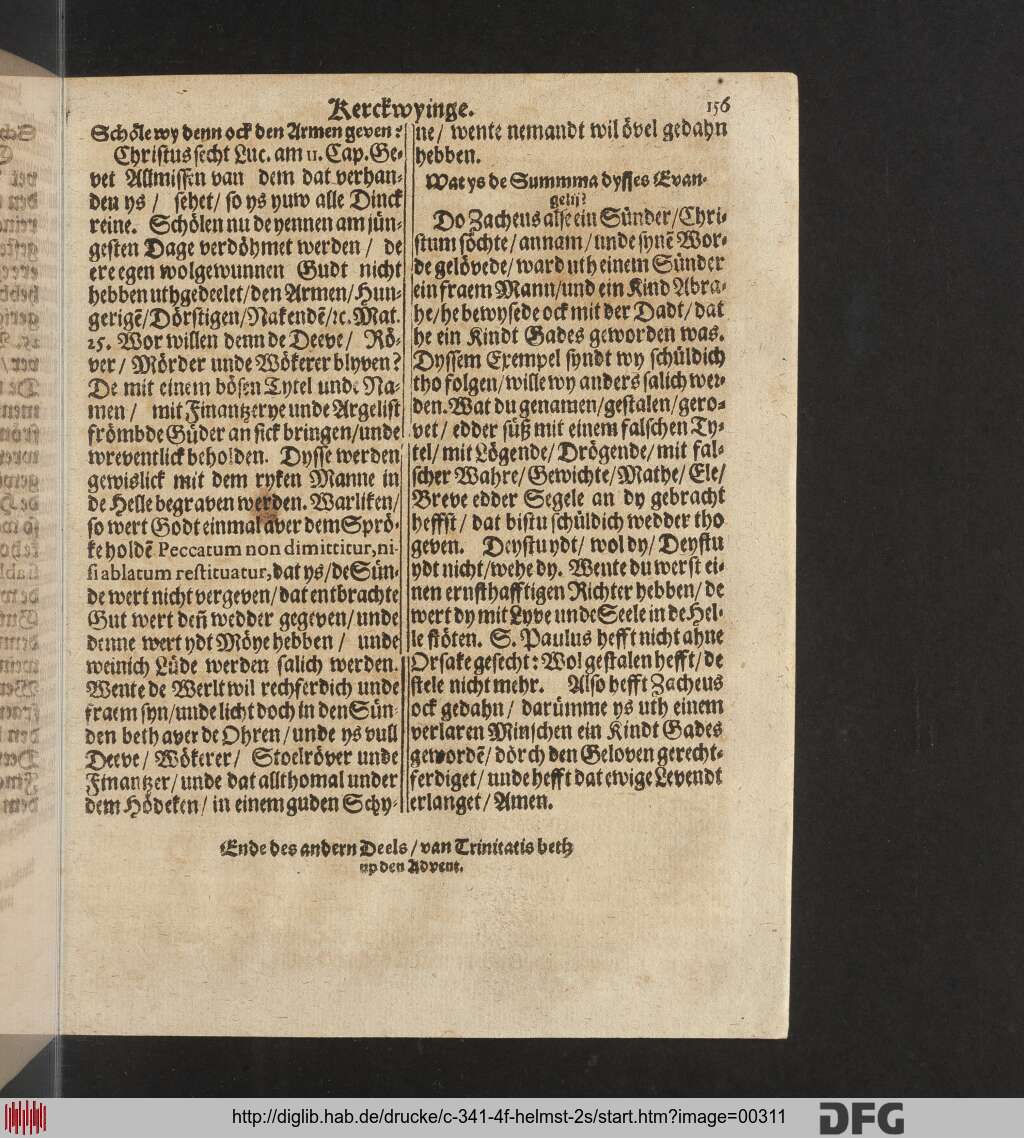 Kerckwyinge.
156
Schöle wy denn ock den Armen geven?
Christus secht Luc. am 11. Cap. Ge-
vet Allmissen van dem dat verhan-
den ys / sehet / so ys yuw alle Dinck
reine. Schölen nu de yennen am jün-
gesten Dage verdöhmet werden / de
ere egen wolgewunnen Gudt nicht
hebben uthgedeelet / den Armen / Hun-
gerigē / Dörstigen / Nakendē / ꝛc. Mat.
25. Wor willen denn de Deeve / Rö-
ver / Mörder unde Wökerer blyven?
De mit einem bösen Tytel unde Na-
men / mit Finantzerye unde Argelist
frömbde Güder an sick bringen / unde
wreventlick beholden. Dysse werden
gewislick mit dem ryken Manne in
de Helle begraven werden. Warliken /
so wert Godt einmal aver dem Sprö-
ke holdē Peccatum non dimittitur, ni-
si ablatum restituatur, dat ys / de Sün-
de wert nicht vergeven / dat entbrachte
Gut wert deñ wedder gegeven / unde
denne wert ydt Möye hebben / unde
weinich Lüde werden salich werden.
Wente de Werlt wil rechferdich unde
fraem syn / unde licht doch in den Sün-
den beth aver de Ohren / unde ys vull
Deeve / Wökerer / Stoelröver unde
Finantzer / unde dat allthomal under
dem Hödeken / in einem guden Schy-
ne / wente nemandt wil övel gedahn
hebben.
Wat ys de Summma dysses Evan-
gelij?
Do Zacheus alse ein Sünder / Chri-
stum söchte / annam / unde synē Wor-
de gelövede / ward uth einem Sünder
ein fraem Mann / und ein Kind Abra-
he / he bewysede ock mit der Dadt / dat
he ein Kindt Gades geworden was.
Dyssem Exempel syndt wy schüldich
tho folgen / wille wy anders salich wer-
den. Wat du genamen / gestalen / gero-
vet / edder süß mit einem falschen Ty-
tel / mit Lögende / Drögende / mit fal-
scher Wahre / Gewichte / Mathe / Ele /
Breve edder Segele an dy gebracht
heffst / dat bistu schüldich wedder tho
geven. Deystu ydt / wol dy / Deystu
ydt nicht / wehe dy. Wente du werst ei-
nen ernsthafftigen Richter hebben / de
wert dy mit Lyve unde Seele in de Hel-
le stöten. S. Paulus hefft nicht ahne
Orsake gesecht: Wol gestalen hefft / de
stele nicht mehr. Also hefft Zacheus
ock gedahn / darümme ys uth einem
verlaren Minschen ein Kindt Gades
gewordē / dörch den Geloven gerecht-
ferdiget / unde hefft dat ewige Levendt
erlanget / Amen.
Ende des andern Deels / van Trinitatis beth
up den Advent.
http://diglib.hab.de/drucke/c-341-4f-helmst-2s/start.htm?image=00311
DFG